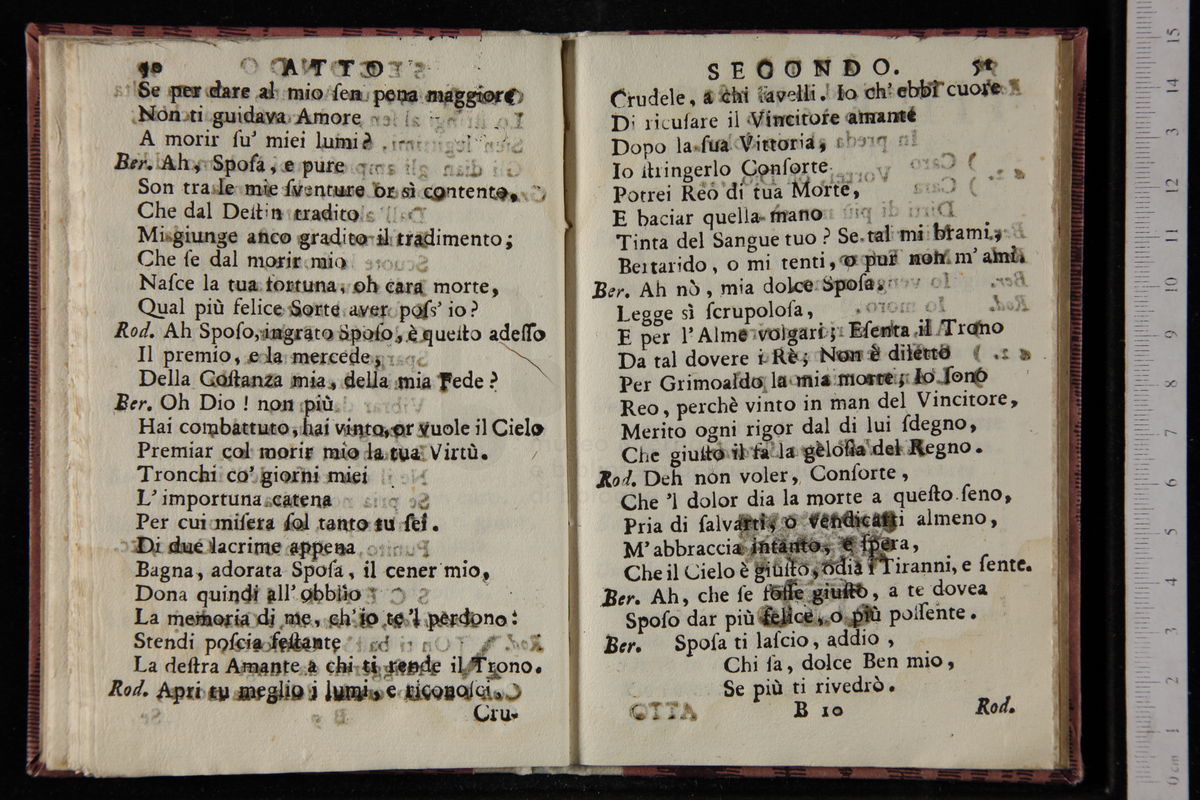 50 ATTO
Se per dare al mio ſen pena maggiore
Non ti guidava Amore
A morir ſu' miei lumi?
Ber. Ah, Spoſa, e pure
Son tra le mie ſventure or sì contento,
Che dal Deſtin tradito
Mi giunge anco gradito il tradimento;
Che ſe dal morir mio
Naſce la tua fortuna, oh cara morte,
Qual più felice Sorte aver poſs' io?
Rod. Ah Spoſo, ingrato Spoſo, è queſto adeſſo
Il premio, e la mercede,
Della Coſtanza mia, della mia Fede?
Ber. Oh Dio! non più
Hai combattuto, hai vinto, or vuole il Cielo
Premiar col morir mio la tua Virtù.
Tronchi co' giorni miei
L' importuna catena
Per cui miſera ſol tanto tu ſei.
Di due lacrime appena
Bagna, adorata Spoſa, il cener mio,
Dona quindi all' obblio
La memoria di me, ch'io te'l perdono:
Stendi poſcia feſtante
La deſtra Amante a chi ti rende il Trono.
Rod. Apri tu meglio i lumi, e riconoſci,
Cru-
SECONDO. 51
Crudele, a chi favelli. Io ch' ebbi cuore
Di ricuſare il Vincitore amante
Dopo la ſua Vittoria,
Io ſtringerlo Conſorte
Potrei Reo di tua Morte,
E baciar quella mano
Tinta del Sangue tuo? Se tal mi brami,
Bertarido, o mi tenti, o pur non m' ami.
Ber. Ah nò, mia dolce Spoſa,
Legge sì ſcrupoloſa,
E per l'Alme volgari; Eſenta il Trono
Da tal dovere i Rè; Non è diletto
Per Grimoaldo la mia morte; Io ſono
Reo, perchè vinto in man del Vincitore,
Merito ogni rigor dal di lui ſdegno,
Che giuſto il fa la geloſia del Regno.
Rod. Deh non voler, Conſorte,
Che 'l dolor dia la morte a queſto ſeno,
Pria di ſalvarti, o vendicarti almeno,
M'abbraccia intanto, e ſpera,
Che il Cielo è giuſto, odia i Tiranni, e ſente.
Ber. Ah, che ſe foſſe giuſto, a te dovea
Spoſo dar più felice, o più poſſente.
Ber. Spoſa ti laſcio, addio,
Chi ſa, dolce Ben mio,
Se più ti rivedrò.
B 10 Rod.
15
14
13
12
11
10
9
8
7
6
5
4
3
2
1
0 cm